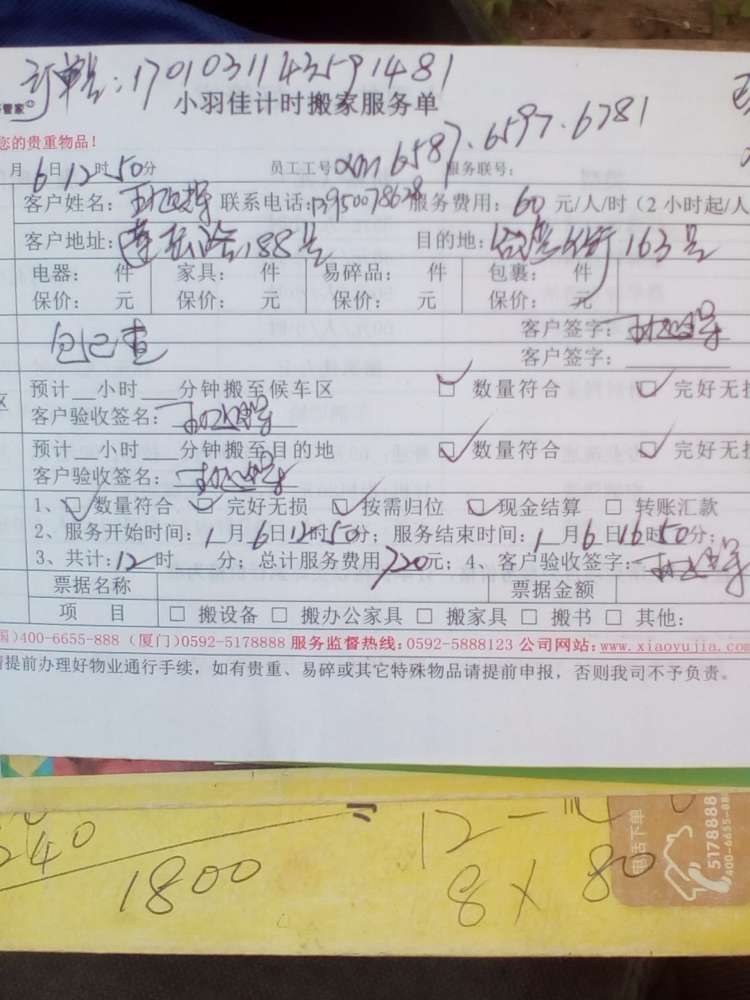 订单号：1701031143591481
管家
小羽佳计时搬家服务单
您的贵重物品！
月6日12时50分 员工工号 6587.6597.6781 服务联号：
客户姓名： 联系电话： 服务费用：60元/人/时（2小时起/人
客户地址：188号 目的地：163号
电器： 件 家具： 件 易碎品： 件 包裹： 件
保价： 元 保价： 元 保价： 元 保价： 元
客户签字：
客户签字：
区 预计__小时___分钟搬至候车区 □ 数量符合 □ 完好无损
客户验收签名：
预计__小时___分钟搬至目的地 □ 数量符合 □ 完好无损
客户验收签名：
1、□ 数量符合 □ 完好无损 □ 按需归位 □ 现金结算 □ 转账汇款
2、服务开始时间：1月6日12时50分；服务结束时间：1月6日16时50分；
3、共计：12时 分；总计服务费用720元；4、客户验收签字：
票据名称 票据金额
项 目 □ 搬设备 □ 搬办公家具 □ 搬家具 □ 搬书 □ 其他：
国)400-6655-888 (厦门)0592-5178888 服务监督热线：0592-5888123 公司网站：www.xiaoyujia.com
请提前办理好物业通行手续，如有贵重、易碎或其它特殊物品请提前申报，否则我司不予负责。
240
小
12一
电话下单
5178888
400-6655-888
1800
8×80